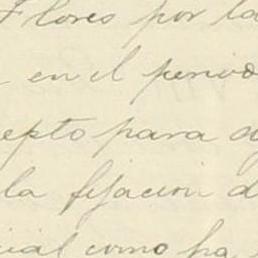 Flores por la
en el period
epto para a
la fijacion d
cial como ha